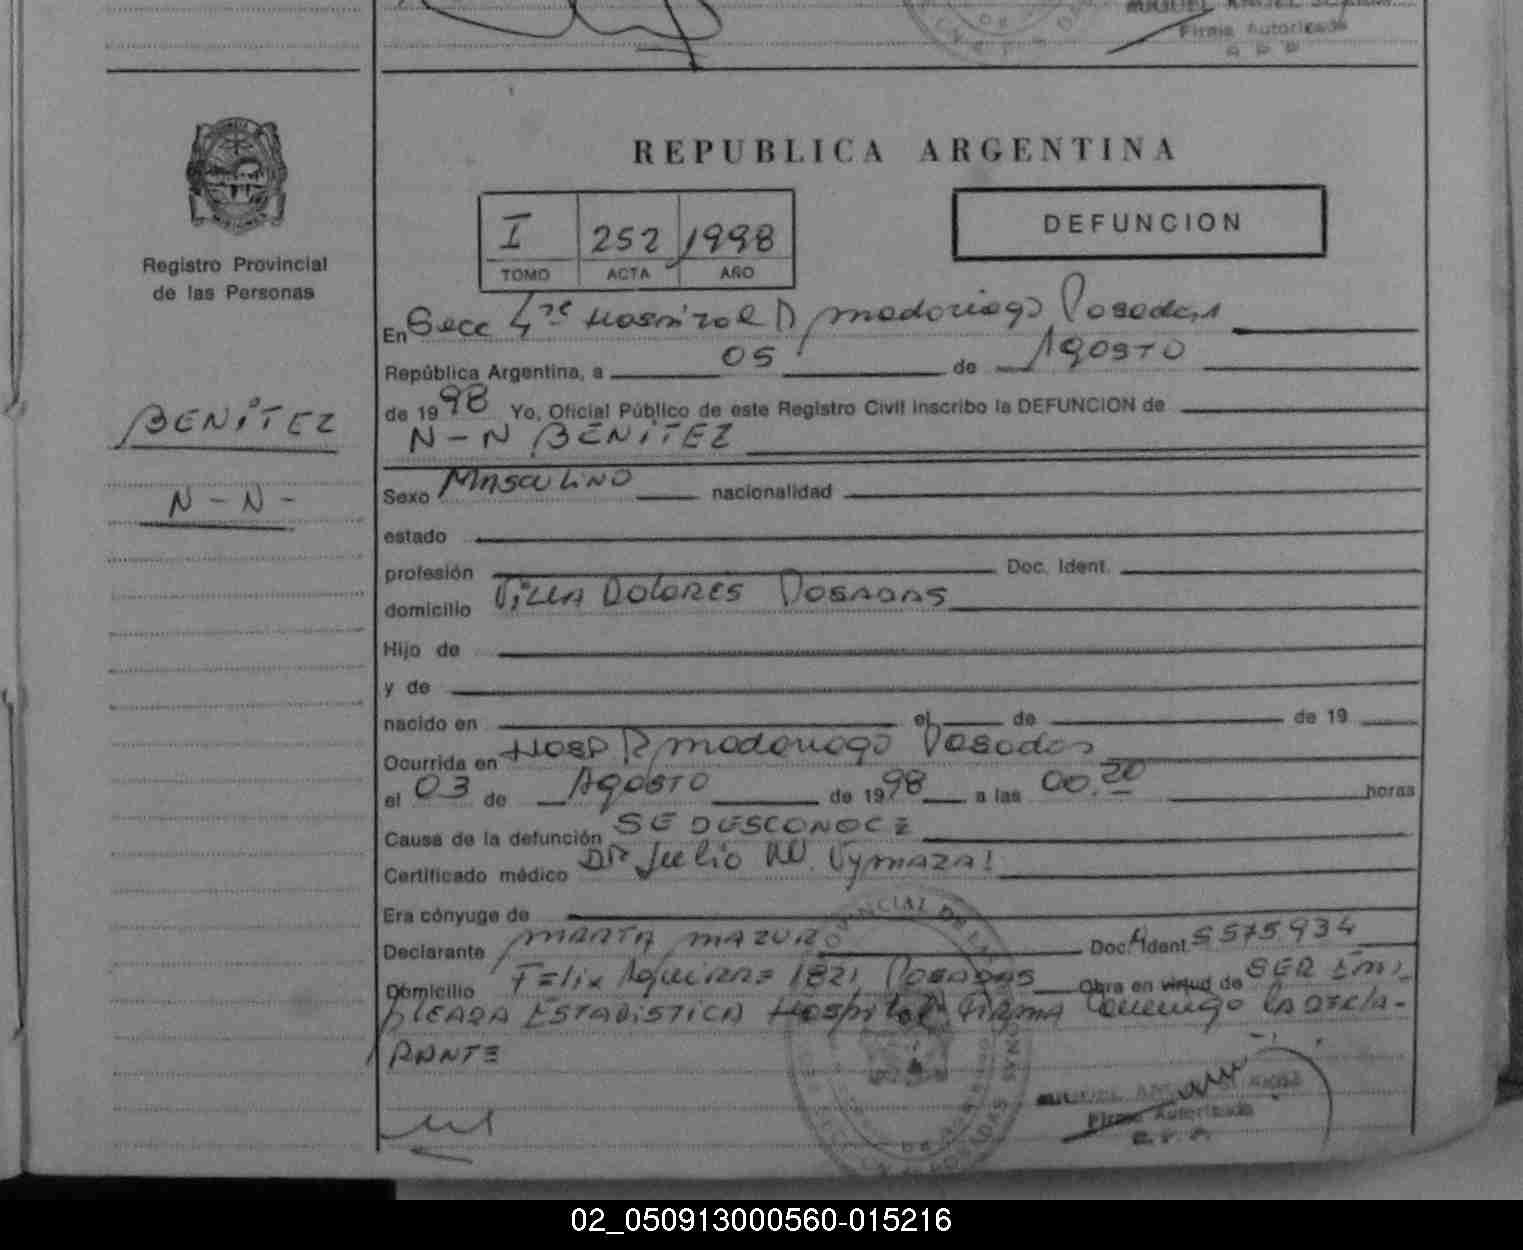 MIGUEL ANGEL
Firma Autorizada
REPUBLICA ARGENTINA
I 252 1998
TOMO ACTA AÑO
DEFUNCION
Registro Provincial
de las Personas
BENÍTEZ
N - N -
En Secc 4ta Hospital R madariaga Posadas
República Argentina, a 05 de Agosto
de 1998 Yo, Oficial Público de este Registro Civil inscribo la DEFUNCION de
N - N BENÍTEZ
Sexo MASCULINO nacionalidad
estado
profesión Doc. Ident.
domicilio VILLA DOLORES POSADAS
Hijo de
y de
nacido en el de de 19
Ocurrida en Hosp R madariaga Posadas
el 03 de AGOSTO de 1998 a las 00.20 horas
Causa de la defunción SE DESCONOCE
Certificado médico DR Julio W. Vymazal
Era cónyuge de
Declarante MARTA MAZUR Doc. Ident. 5575934
Domicilio Felix Aguirre 1821 POSADAS Obra en virtud de SER EM
PLEADA ESTADISTICA Hospital FIRMA Conmigo la decla-
RANTE
Firma Autorizada
02_050913000560-015216